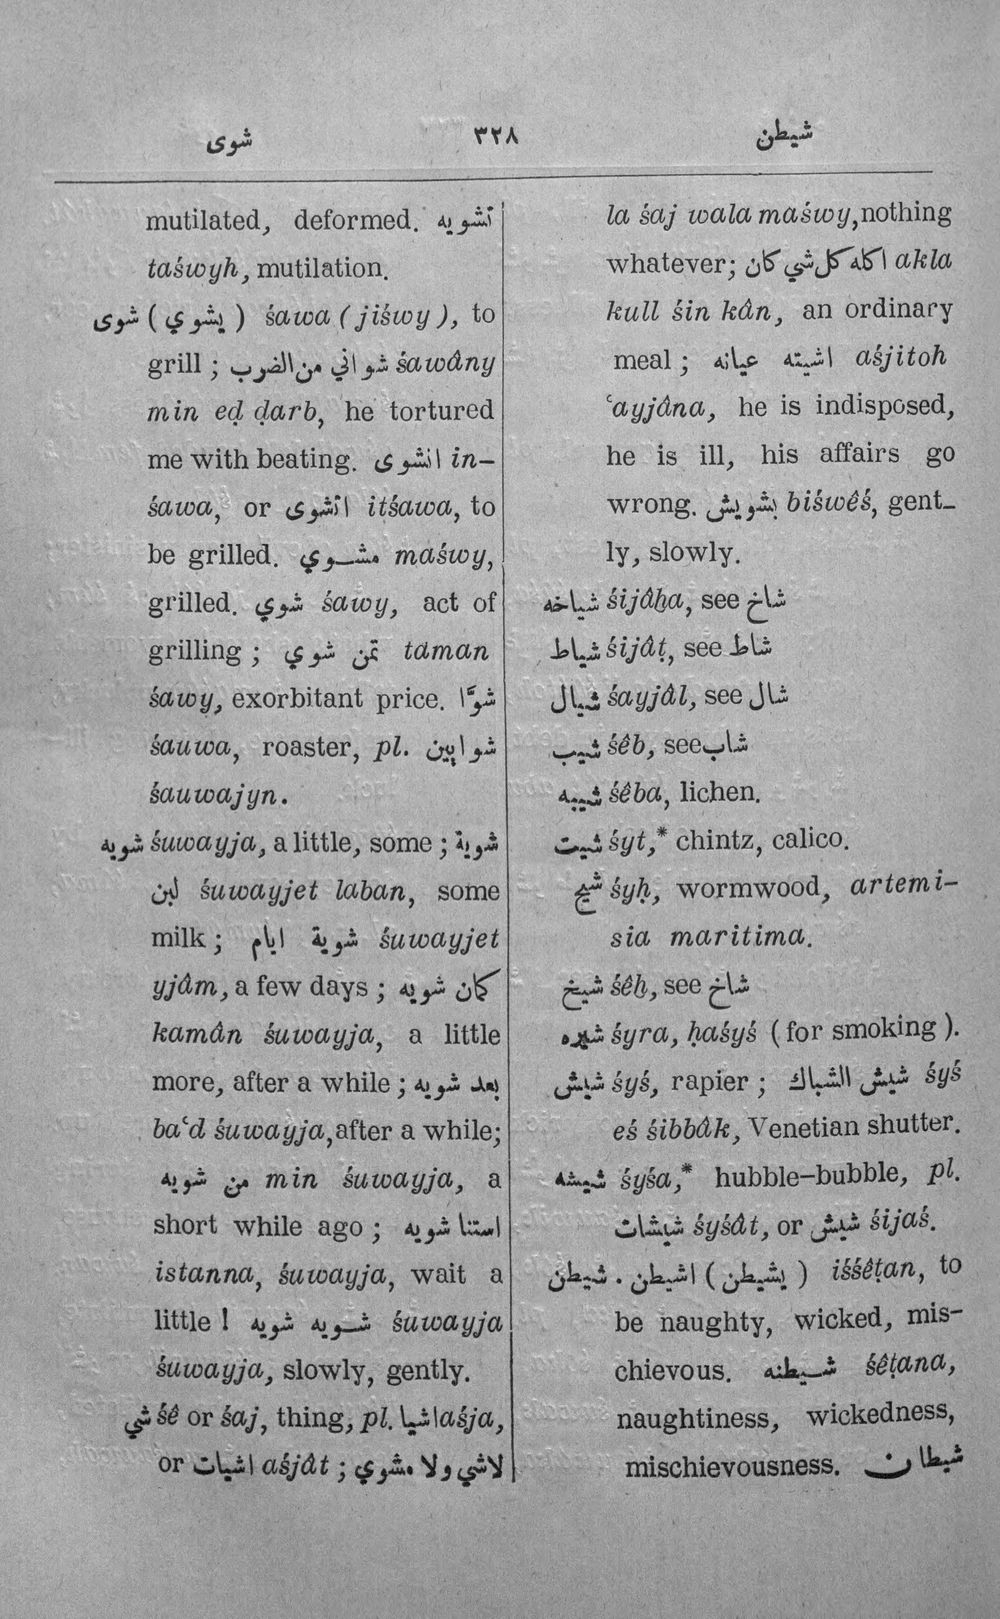 شوى ٣٢٨ شيطن
mutilated, deformed. تشويه
taśwyh, mutilation.
شوى ( يشوي ) śawa ( jiśwy ), to
grill ; شواني من الضرب śawâny
min eḍ ḍarb, he tortured
me with beating. انشوى in-
śawa, or اتشوى itśawa, to
be grilled. مشوي maśwy,
grilled. شوي śawy, act of
grilling ; تمن شوي taman
śawy, exorbitant price. شوّا
śauwa, roaster, pl. شوايين
śauwajyn.
شويه śuwayja, a little, some ; شوية
لبن śuwayjet laban, some
milk ; شوية ايام śuwayjet
yjâm, a few days ; كمان شويه
kamân śuwayja, a little
more, after a while ; بعد شويه
baʿd śuwayja, after a while;
من شويه min śuwayja, a
short while ago ; استنا شويه
istanna, śuwayja, wait a
little ! شويه شويه śuwayja
śuwayja, slowly, gently.
شي śê or śaj, thing, pl. اشيا aśja,
or اشيات aśjât ; لاشي ولا مشوي
la śaj wala maśwy, nothing
whatever; اكله كل شي كان akla
kull śin kân, an ordinary
meal ; اشيته عيانه aśjitoh
ʿayjâna, he is indisposed,
he is ill, his affairs go
wrong. بشويش biświêś, gent-
ly, slowly.
شياخه śijâẖa, see شاخ
شياط śijâṭ, see شاط
شيال śayjâl, see شال
شيب śêb, see شاب
شيبه śêba, lichen.
شيت śyt,* chintz, calico.
شيح śyḥ, wormwood, artemi-
sia maritima.
شيخ śêẖ, see شاخ
شيره śyra, ḥaśyś ( for smoking ).
شيش śyś, rapier ; شيش الشباك śyś
eś śibbâk, Venetian shutter.
شيشه śyśa,* hubble-bubble, pl.
شيشات śyśât, or شيش śijaś.
شيطن . اشيطن ( يشيطن ) iśśêṭan, to
be naughty, wicked, mis-
chievous. شيطنه śêṭana,
naughtiness, wickedness,
mischievousness. شيطان